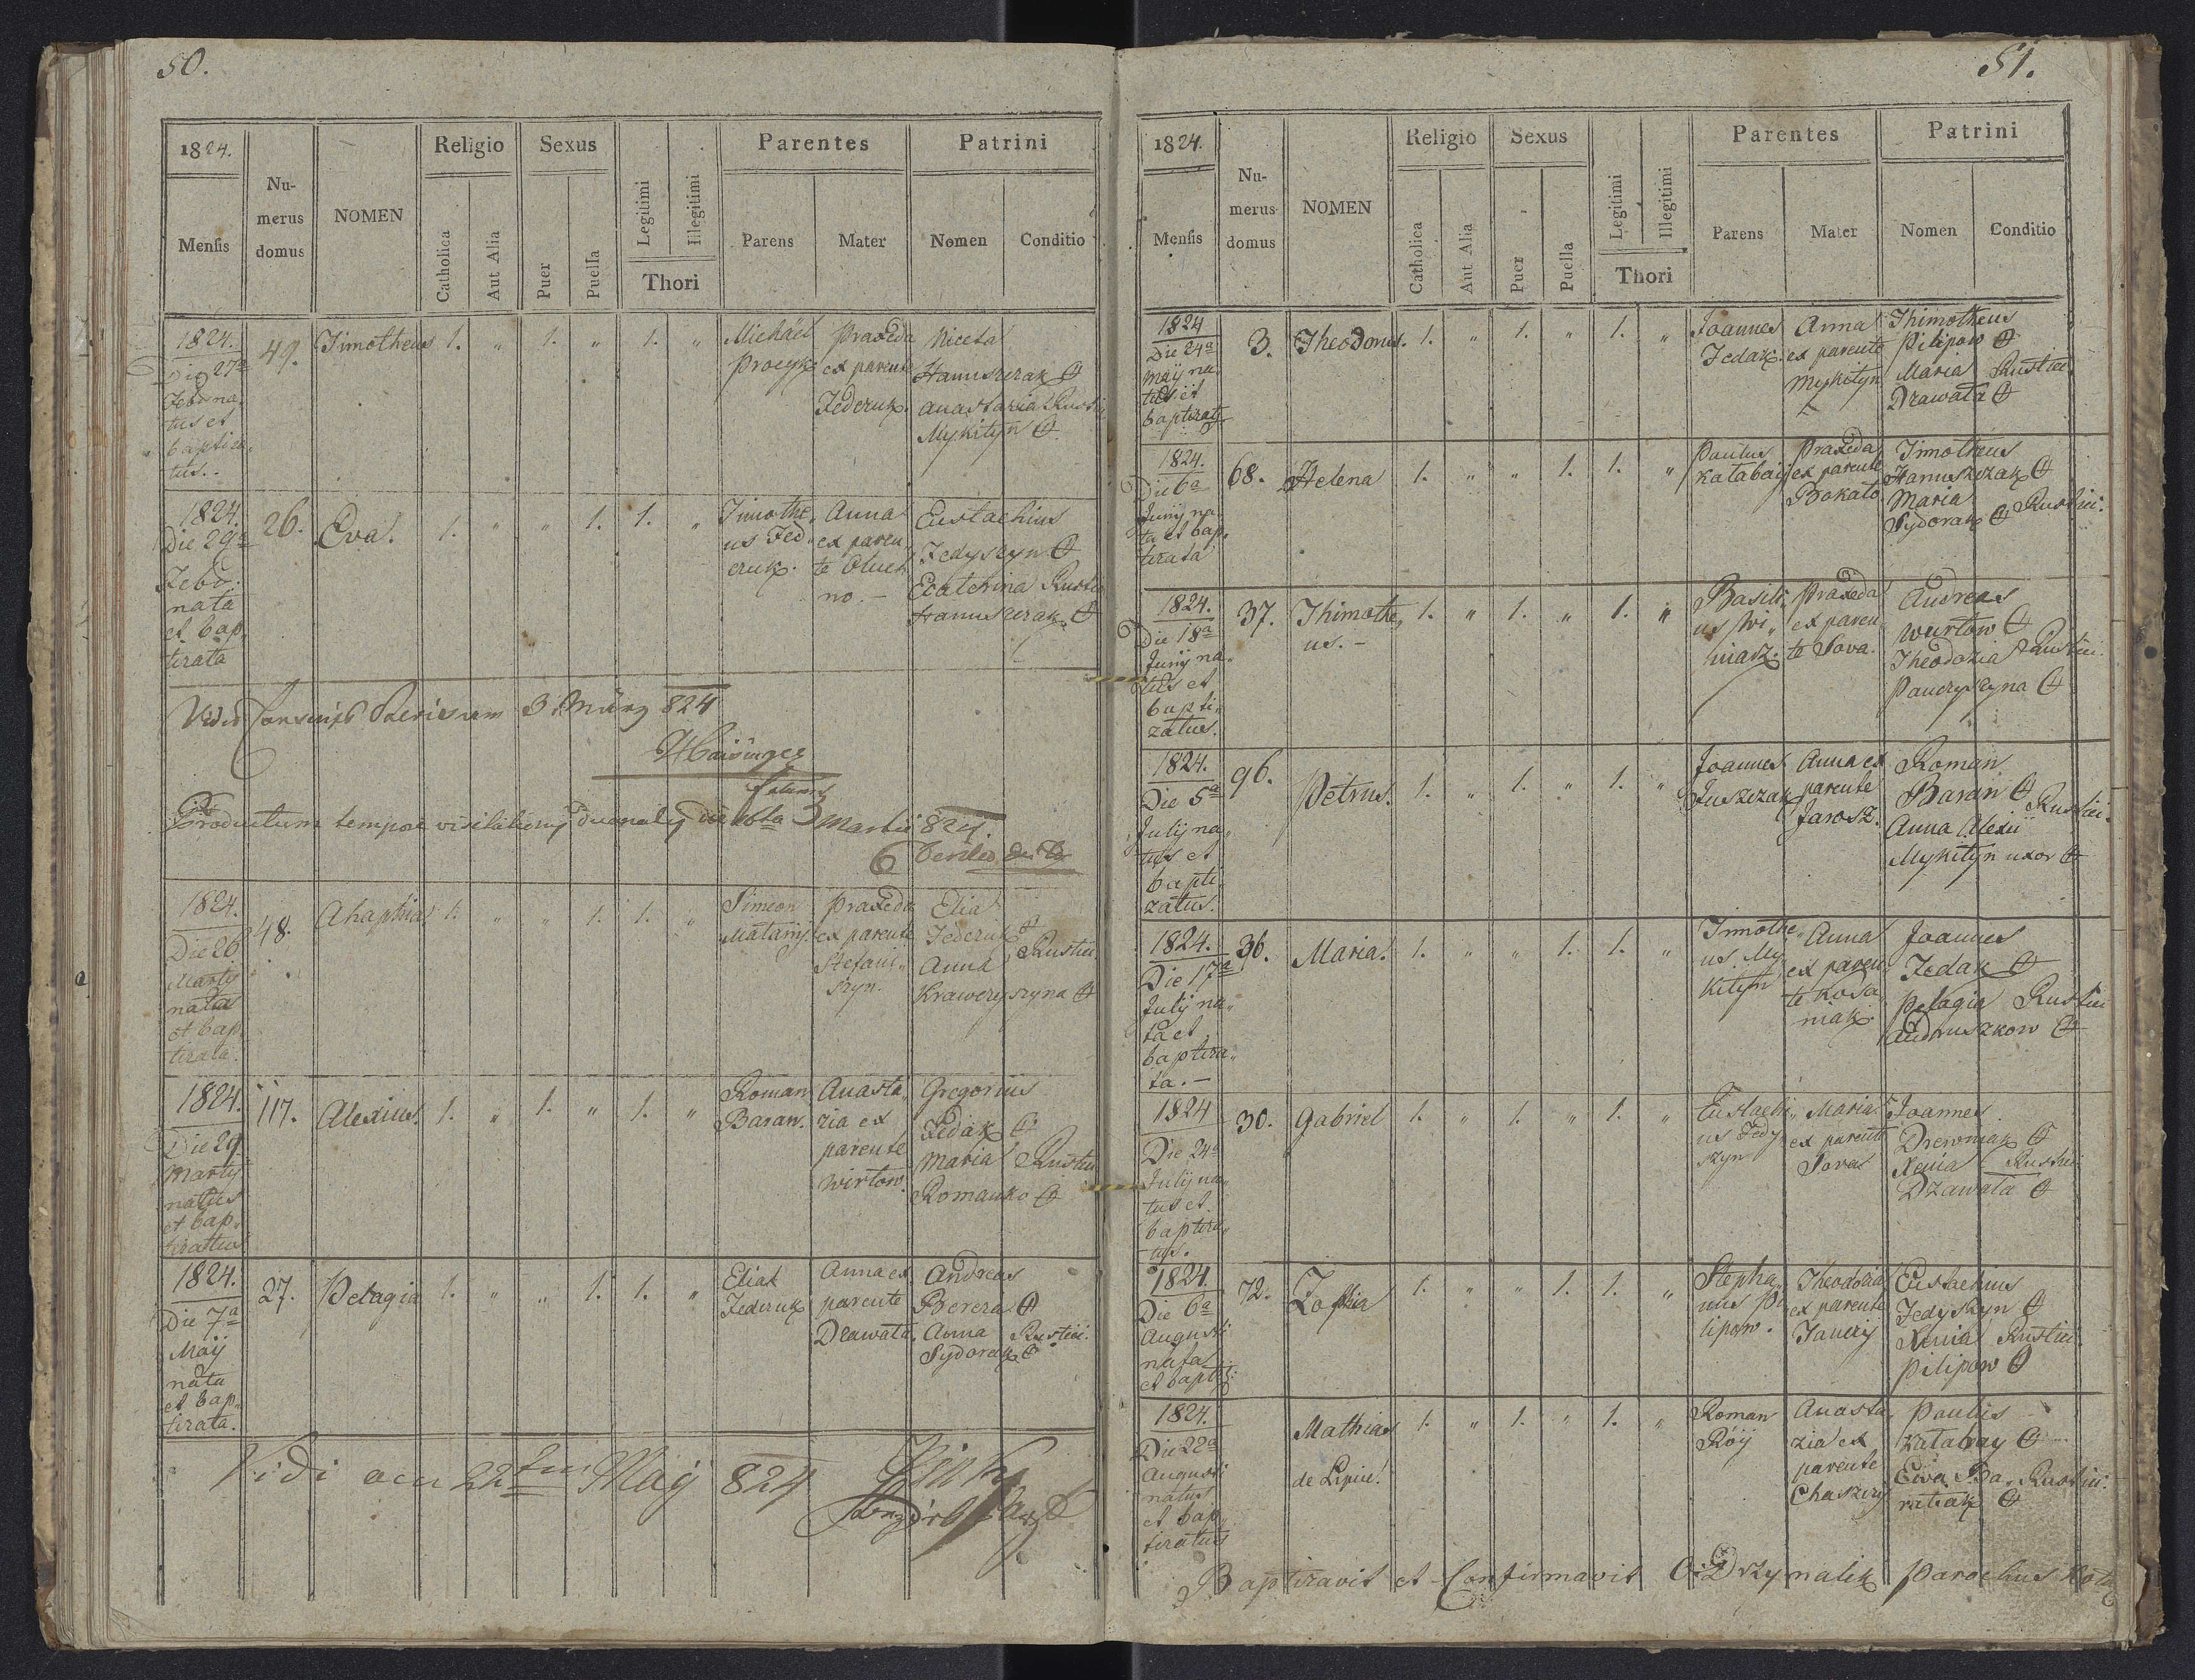 50.
1824.
Mensis
Nu-
merus
domus
NOMEN
Religio
Catholica
Aut Alia
Sexus
Puer
Puella
Legitimi
Illegitimi
Thori
Parentes
Parens
Mater
Patrini
Nomen
Conditio
1824.
Die 27a
Febr. na
tus et
baptiza
tus.
49.
Timotheus
1. " 1. " 1. "
Michael
Procyk
Praxeda
ex parente
Federuk.
Niceta
Hanuszczak
Anastazia Rustici
Mykityn
1824.
Die 29a
Febr.
nata
et bap
tizata
26.
Eva.
1. " " 1. 1. "
Timothe
us Fed
eruk.
Anna
ex paren
te Oluch
no. –
Eustachius
Fedyszyn
Ecaterina Rustici
Hanuszczak
3 März 824
Productum tempore visitationis Martii 824.
1824.
Die 26
Martij
nata
et bap
tizata.
48.
Ahaphia
1. " " 1. 1. "
Simeon
Matanij
Praxeda
ex parente
Stefani
szyn.
Elia
Federuk
Anna Rustici
Krawczyszyna
1824.
Die 29.
Martij
natus
et bap
tizatus
117.
Alexius.
1. " 1. " 1. "
Roman
Baran.
Anasta
zia ex
parente
Wirtow.
Gregorius
Fedak
Maria Rustici
Romanko
1824.
Die 7a
Maij
nata
et bap
tizata.
27.
Pelagia
1. " " 1. 1. "
Eliak
Federuk
Anna ex
parente
Drawata.
Andreas
Bereza
Anna Rustici.
Sydorak
Vidi am 22ten Maij 824
51.
1824.
Mensis
Nu-
merus
domus
NOMEN
Religio
Catholica
Aut Alia
Sexus
Puer
Puella
Legitimi
Illegitimi
Thori
Parentes
Parens
Mater
Patrini
Nomen
Conditio
1824
Die 24a
Maij na
tus et
baptizat
3.
Theodorus.
1. " 1. " 1. "
Joannes
Fedak.
Anna
ex parente
Mykityn
Thimotheus
Pilipow
Maria Rustici
Drawata
1824.
Die 6a
Junij na
ta et bap
tizata
68.
Helena
1. " " 1. 1. "
Paulus
Katabaij
Praxeda
ex parente
Bokato
Timotheus
Hanuszczak
Maria
Sydorak Rustici.
1824.
Die 18a
Junij na
tus et
bapti
zatus.
37.
Thimothe
us. –
1. " 1. " 1. "
Basili
us Wi
niasz.
Praxeda
ex paren
te Sova.
Andreas
Wurtow
Theodozia Rustici.
Panczyszyna
1824.
Die 5a
Julij na
tus et
bapti
zatus.
96.
Petrus.
1. " 1. " 1. "
Joannes
Juszczak
Anna ex
parente
Jarosz.
Roman
Baran
Rustici.
Anna Alexii
Mykityn uxor
1824.
Die 17a
Julij na
ta et
baptiza
ta. –
36.
Maria.
1. " " 1. 1. "
Timothe
us. My
kityn
Anna
ex paren
te Kosa
niak.
Joannes
Fedak
Pelagia Rustici
Andruszkow
1824
Die 24a
Julij na
tus et
baptiza
tus.
30.
Gabriel
1. " 1. " 1. "
Eustachi
us Fedy
szyn
Maria
ex parente
Sova
Joannes
Drewniak
Xenia Rustici
Dzawata
1824.
Die 6a
Augusti
nata
et baptiz.
72.
Zophia
1. " " 1. 1. "
Stepha
nus Pi
lipow.
Theodozia
ex parente
Janczij
Eustachius
Fedyszyn
Xenia Rustici.
Pilipow
1824.
Die 22a
Augusti
natus
et bap
tizatus
Mathias
de Lipiu!
1. " 1. " 1. "
Roman
Róij
Anasta
zia ex
parente
Chaszczij
Paulus
Katabay
Ewa Ba Rustici.
ratiak
Baptizavit et Confirmavit Parochus